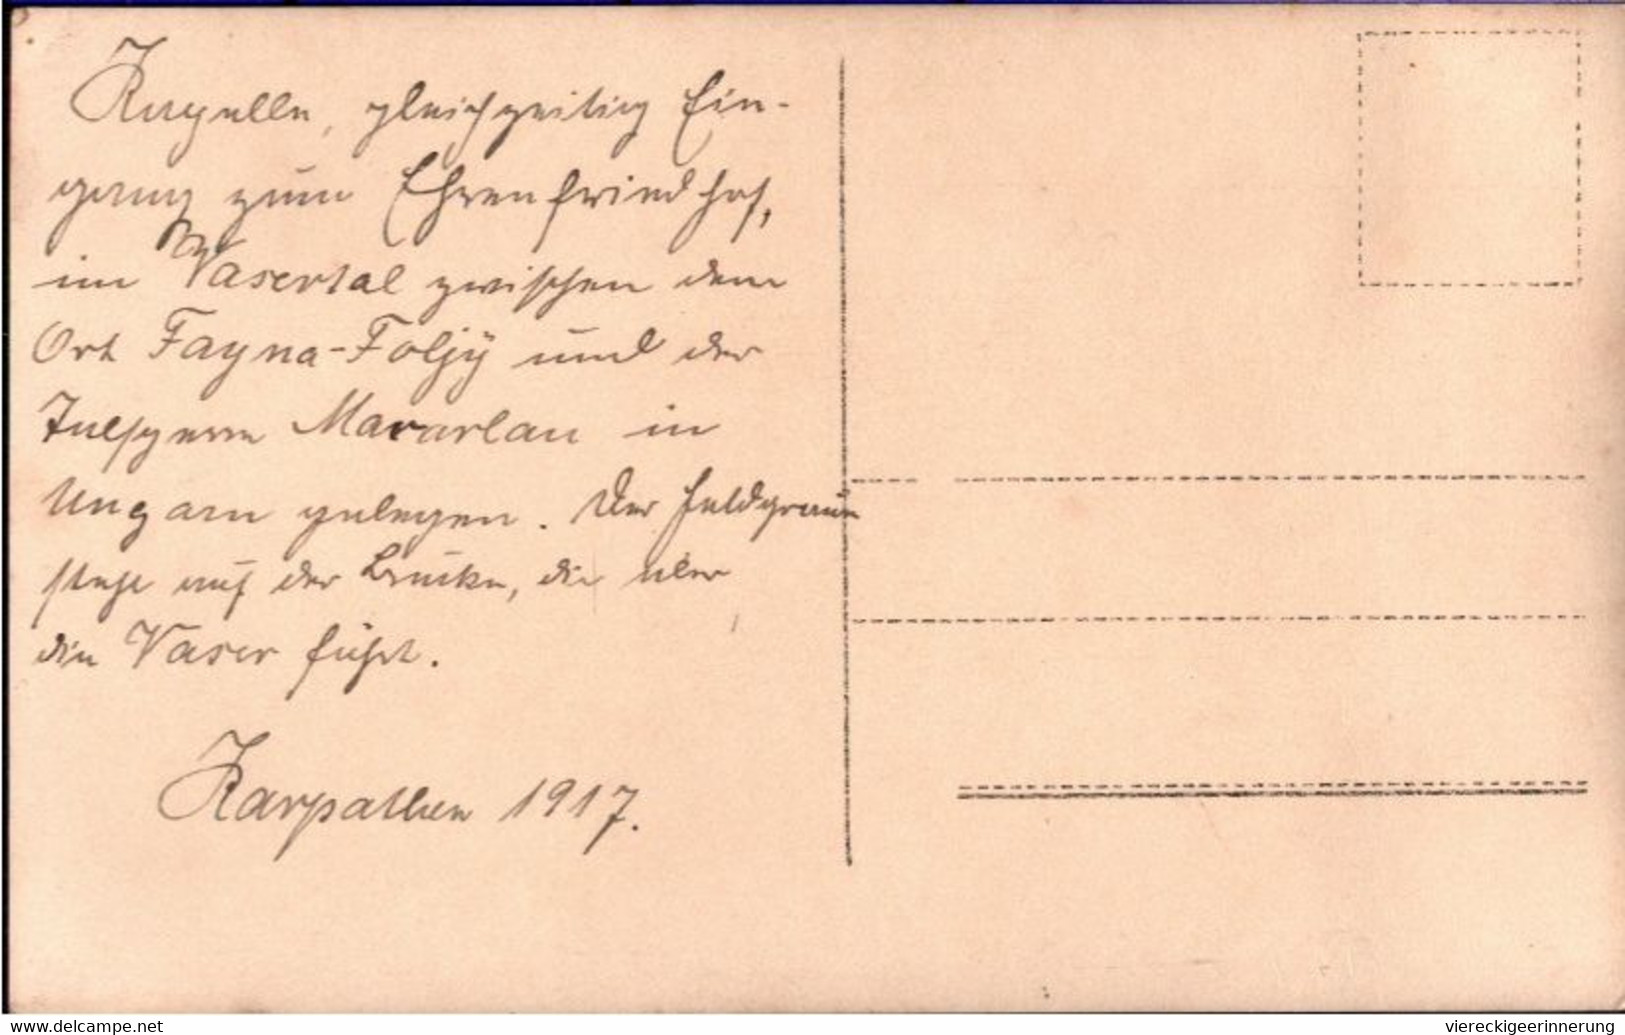 Kapelle, gleichzeitig Ein-
gang zum Ehrenfriedhof,
im Vasertal zwischen dem
Ort Fayna-Foljÿ und der
Talsperre Mararlau in
Ungarn gelegen. Der Feldgraue
steht auf der Brücke, die über
die Vaser führt.
Karpathen 1917.
www.delcampe.net
viereckigeerinnerung